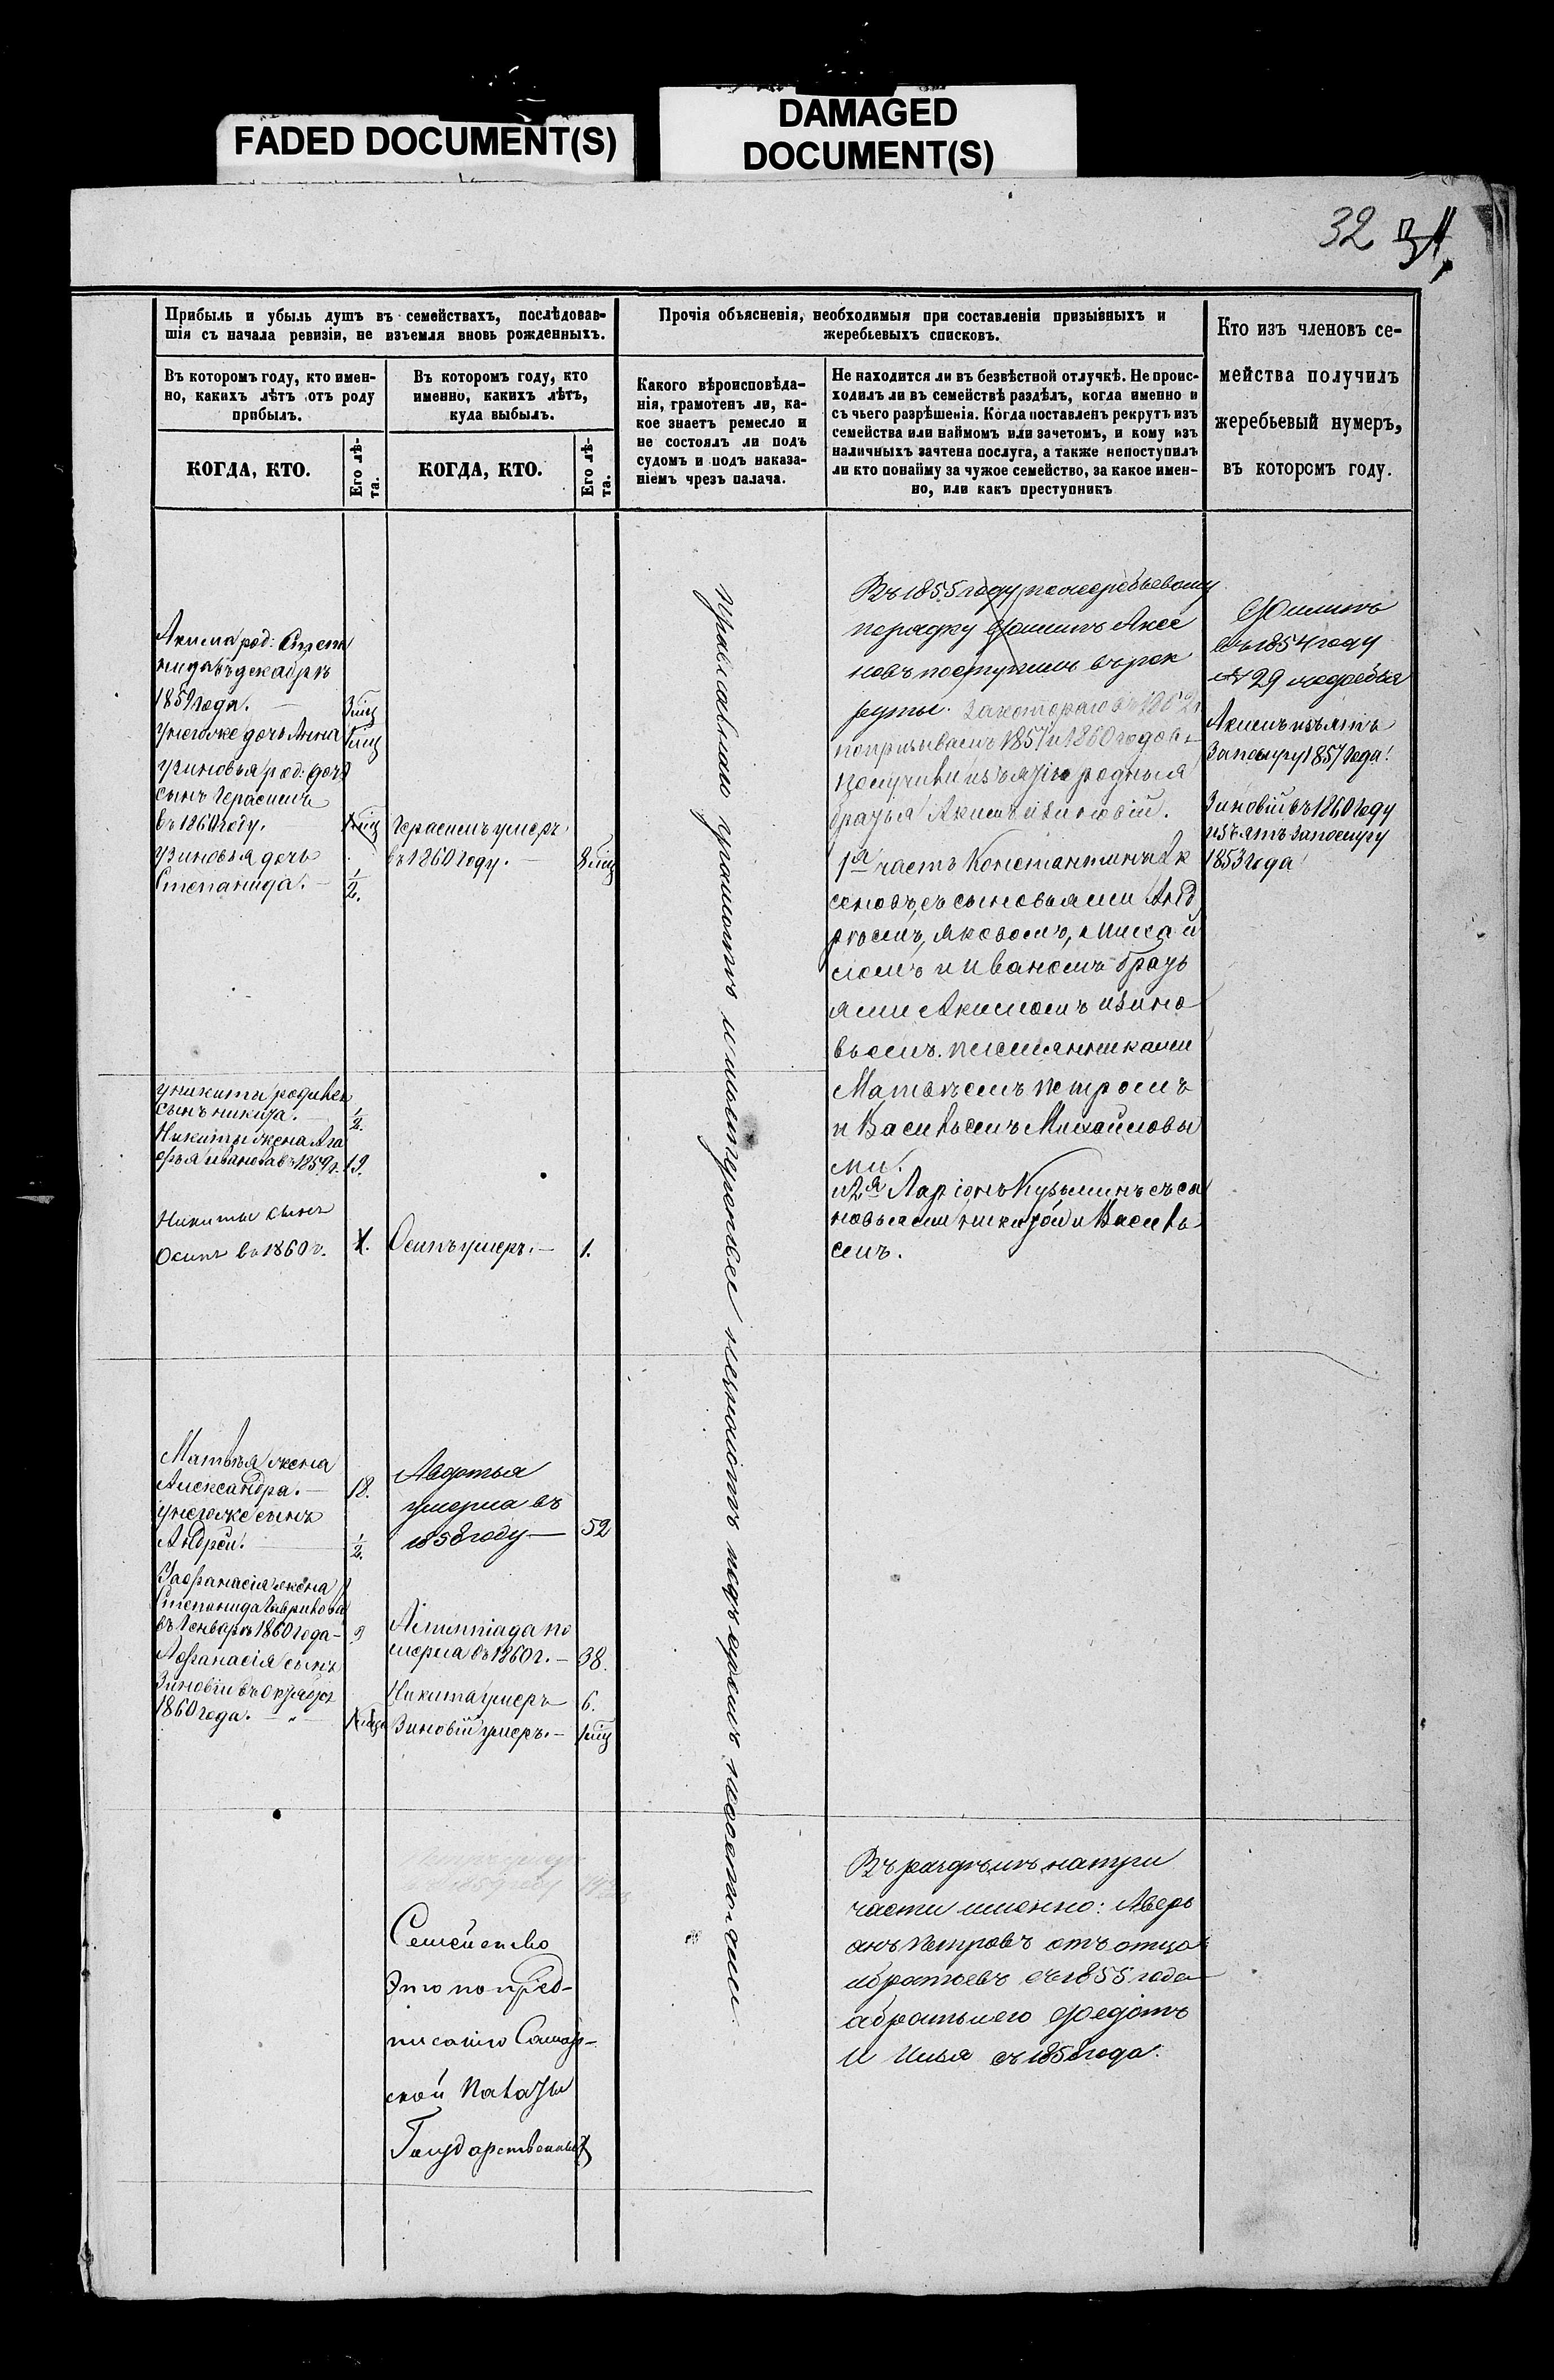 FADED DOCUMENT(S)
DAMAGED
DOCUMENT(S)
32
31
Прибыль и убыль душъ въ семействахъ, послѣдовав-
шія съ начала ревизіи, не изъемля вновь рожденныхъ.
Въ которомъ году, кто имен-
но, какихъ лѣтъ отъ роду
прибылъ.
КОГДА, КТО.
Его лѣ-
та.
Въ которомъ году, кто
именно, какихъ лѣтъ,
куда выбылъ.
КОГДА, КТО.
Его лѣ-
та.
Прочія объясненія, необходимыя при составленіи призывныхъ и
жеребьевыхъ списковъ.
Какого вѣроисповѣда-
нія, грамотенъ ли, ка-
кое знаетъ ремесло и
не состоялъ ли подъ
судомъ и подъ наказа-
ніемъ чрезъ палача.
Не находится ли въ безвѣстной отлучкѣ. Не проис-
ходилъ ли въ семействѣ раздѣлъ, когда именно и
съ чьего разрѣшенія. Когда поставленъ рекрутъ изъ
семейства или наймомъ или зачетомъ, и кому изъ
наличныхъ зачтена послуга, а также непоступилъ
ли кто понайму за чужое семейство, за какое имен-
но, или какъ преступникъ
Кто изъ членовъ се-
мейства получилъ
жеребьевый нумеръ,
въ которомъ году.
Акима род:
нида въ декабрѣ
1859 года. 3 мѣц
унегоже дочь Анна 1 мѣц
узиновья род: дочь
сынъ Герасимъ
въ 1860 году.
узиновья дочь
Степанида. 1/2.
Герасимъ умеръ
въ 1860 году. 8 мѣц
уникиты родился
сынъ никита. 1/2.
Никиты жена Ага
фья иванова въ 1859 г. 19.
Никиты сынъ
Осипъ въ 1860 г. 1.
Осипъ умеръ. 1.
Матвѣя жена
Александра. 18.
унегоже сынъ
Андрей. 1/2.
Уафанасія жена
Степанида Гаврилова
въ Январѣ 1860 года
Афанасія сынъ
Зиновій въ октябрѣ
1860 года.
Авдотья
умерла въ
1858 году 52
по
мерла въ 1860 г. 38.
Никита умеръ 6.
Зиновій умеръ. 1 мѣц
Семейство
Это по пред-
писанію Самар-
ской Палаты
Государственных
Православнаго грамотѣ и мастерства незнаютъ подъ судомъ несостояли
Въ 1855 году по жеребьевому
порядку Филипъ Аксе
новъ поступилъ въ рек
руты. За котораго въ 1862 г
попризывамъ 1857 и 1860 годовъ
получили изъятіе родныя
братья Акимъ и Зиновій.
1я часть Константинъ Ак
сеновъ, съ сыновьями Анд
рѣемъ, Яковомъ, Миха й
ломъ и Иваномъ братъ
ями Акимомъ и Зино
вьемъ. племянниками
Матвѣемъ Петромъ
и Васильемъ Михайловы
ми.
и 2я Ларіонъ Кузьминъ съ сы
новьями никитой и Василь
емъ.
Въ раздѣлѣ на три
части именно: Аверь
янъ Петровъ отъ отца
и братьевъ съ 1855 года
а братья его Федотъ
И Илья съ 1858 года.
Филипъ
въ 1854 году
№ 29 жеребья
Акимъ изъятъ
За послугу 1857 года.
Зиновій въ 1860 году
изъятъ за послугу
1853 года